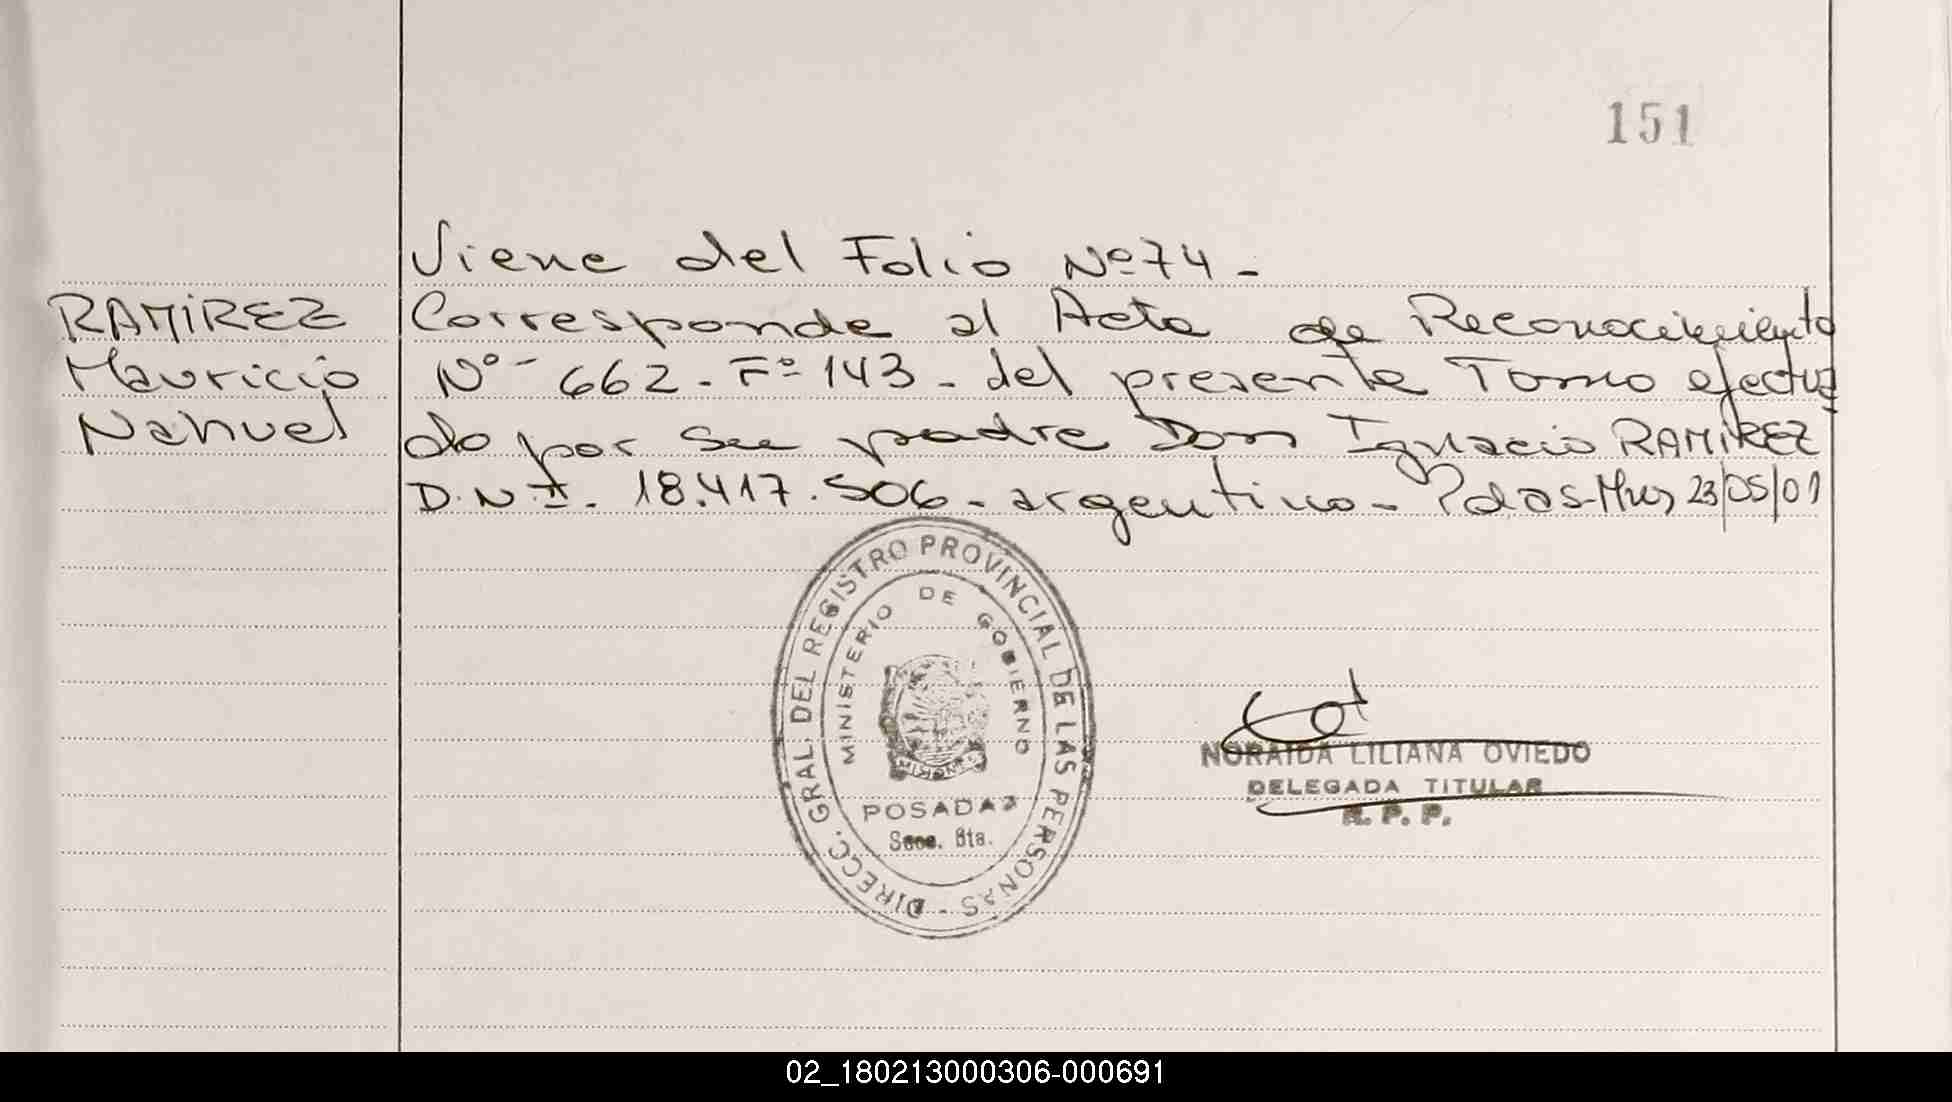 151
Viene del Folio Nº 74 -
RAMIREZ
Mauricio
Nahuel
Corresponde al Acta de Reconocimiento
Nº - 662 - Fº 143 - del presente Tomo efectua
do por su padre Don Ignacio RAMIREZ
D.N.I. 18.417.506 - argentino - Pdas - Mnes 23/05/01
DIRECC. GRAL. DEL REGISTRO PROVINCIAL DE LAS PERSONAS -
MINISTERIO DE GOBIERNO
MISIONES
POSADAS
Secc. 8ta.
NORAIDA LILIANA OVIEDO
DELEGADA TITULAR
R. P. P.
02_180213000306-000691